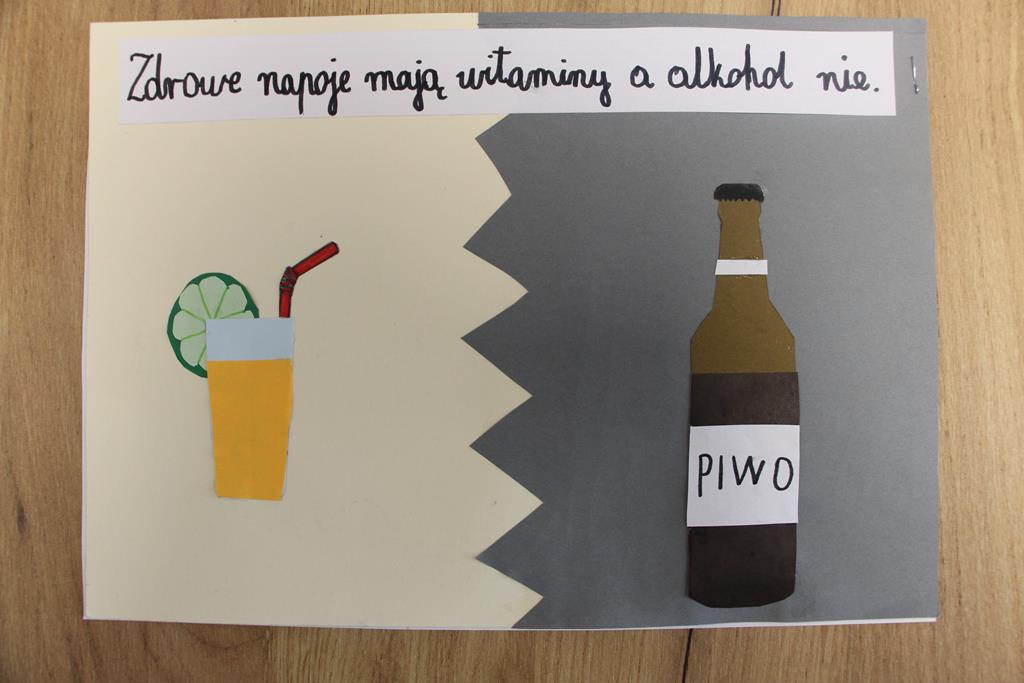 Zdrowe napoje mają witaminy a alkohol nie.
PIWO